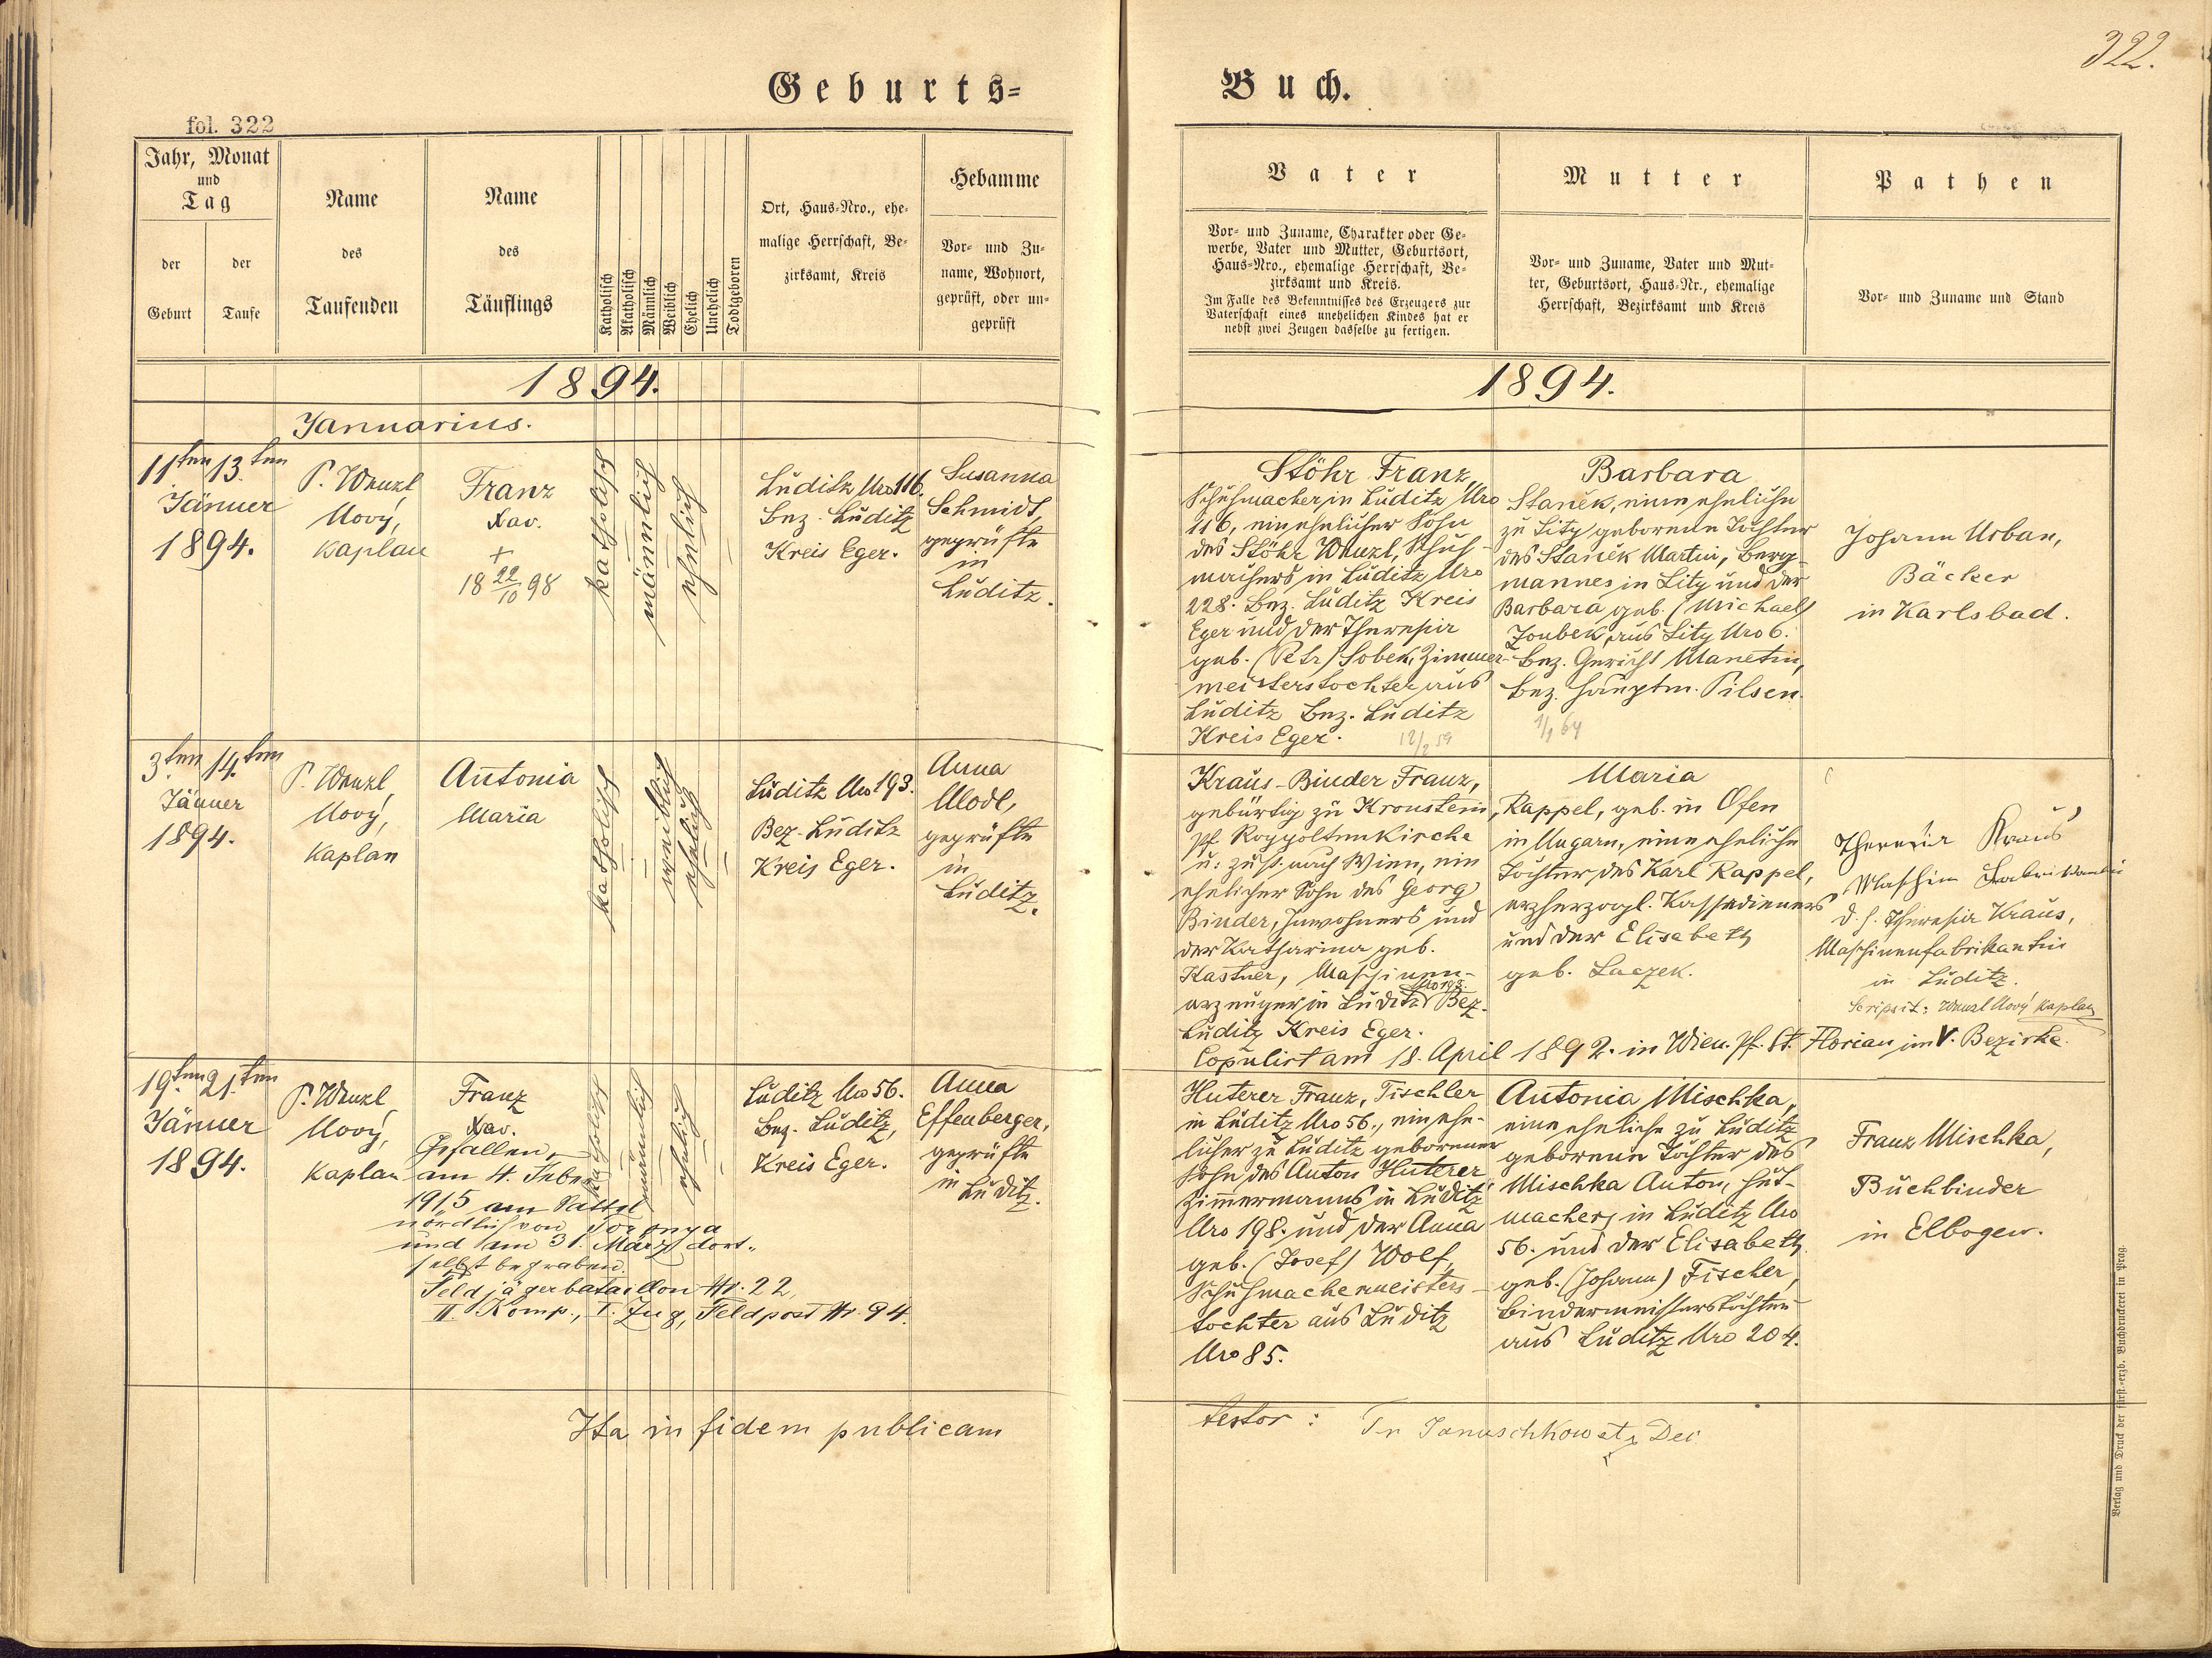 322.
Geburts=
Buch.
fol. 322
Jahr, Monat
und
Tag
der
Geburt
der
Taufe
Name
des
Taufenden
Name
des
Täuflings
Katholisch
Akatholisch
Männlich
Weiblich
Ehelich
Unehelich
Todtgeboren
Ort, Haus=Nro., ehe=
malige Herrschaft, Be=
zirksamt, Kreis
Hebamme
Vor= und Zu=
name, Wohnort,
geprüft, oder un=
geprüft
Vater
Vor= und Zuname, Charakter oder Ge=
werbe, Vater und Mutter, Geburtsort,
Haus=Nro., ehemalige Herrschaft, Be=
zirksamt und Kreis.
Im Falle des Bekenntnisses des Erzeugers zur
Vaterschaft eines unehelichen Kindes hat er
nebst zwei Zeugen dasselbe zu fertigen.
Mutter
Vor= und Zuname, Vater und Mut=
ter, Geburtsort, Haus=Nr., ehemalige
Herrschaft, Bezirksamt und Kreis
Pathen
Vor= und Zuname und Stand
1894.
1894.
Januarius.
11ten 13.ten
Jänner
1894.
P. Wenzl
Nový,
Kaplan
Franz
Xav.
+
18 22/10 98
katholisch
männlich
ehelich
Luditz Nro 116.
Bez. Luditz
Kreis Eger.
Susanna
Schmidt,
geprüfte
in
Luditz.
Stöhr Franz,
Schuhmacher in Luditz Nro
116, ein ehelicher Sohn
des Stöhr Wenzl, Schuh-
machers in Luditz Nro
228. Bez. Luditz Kreis
Eger und der Theresia
geb. (Petr) Sobek, Zimmer-
meisterstochter aus
Luditz Bez. Luditz
Kreis Eger.
12/2 59
Barbara
Staněk, eine eheliche
zu Lity geborene Tochter
des Staněk Martin, Berg-
mannes in Lity und der
Barbara geb. (Michael)
Zoubek, aus Lity Nro 6.
Bez. Gericht Manetin,
Bez. Hauptm. Pilsen.
1/1 64
Johann Urban,
Bäcker
in Karlsbad.
3.ten 14.ten
Jänner
1894.
P. Wenzl
Nový,
Kaplan
Antonia
Maria
katholisch
weiblich
ehelich
Luditz Nro 193.
Bez. Luditz
Kreis Eger.
Anna
Modl,
geprüfte
in
Luditz.
Kraus-Binder Franz,
gebürtig zu Kronstein,
Pf. Roggoltenkirche
u. zust. nach Wien, ein
ehelicher Sohn des Georg
Binder, Inwohners und
der Katharina geb.
Kastner, Maschinen-
erzeuger in Luditz Nro 193. Bez.
Luditz Kreis Eger.
Maria
Rappel, geb. in Ofen
in Ungarn, eine eheliche
Tochter des Karl Rappel,
erzherzogl. Kassadieners
und der Elisabeth
geb. Laczek.
Theresia Kraus
Maschin Fabrikantin
d. h. Theresia Kraus,
Maschinenfabrikantin
in Luditz.
Scripsit: Wenzl Nový Kaplan
Copulirt am 18. April 1892. in Wien. Pf. St. Florian im V. Bezirke.
19.ten 21.ten
Jänner
1894.
P. Wenzl
Nový,
Kaplan
Franz
Xav.
Gefallen
am 4. Feber
1915 am Sattel
nördlich von Toronya
und am 31. März dort-
selbst begraben.
Feldjägerbataillon Nr. 22,
II. Komp., I. Zug, Feldpost Nr. 94.
katholisch
männlich
ehelich
Luditz Nro 56.
Bez. Luditz,
Kreis Eger.
Anna
Effenberger,
geprüfte
in Luditz.
Huterer Franz, Tischler
in Luditz Nro 56., ein ehe-
licher zu Luditz geborener
Sohn des Anton Huterer,
Zimmermanns in Luditz
Nro 198. und der Anna
geb. (Josef) Wolf,
Schuhmachermeisters-
tochter aus Luditz
Nro 85.
Antonia Mischka,
eine eheliche zu Luditz
geborene Tochter des
Mischka Anton, Hut-
machers in Luditz Nro
56. und der Elisabeth
geb. (Johann) Fischer,
Bindermeisterstochter
aus Luditz Nro 204.
Franz Mischka,
Buchbinder
in Elbogen.
Ita in fidem publicam
testor: Januschkowetz Dec
Verlag und Druck der fürst.=erzb. Buchdruckerei in Prag.